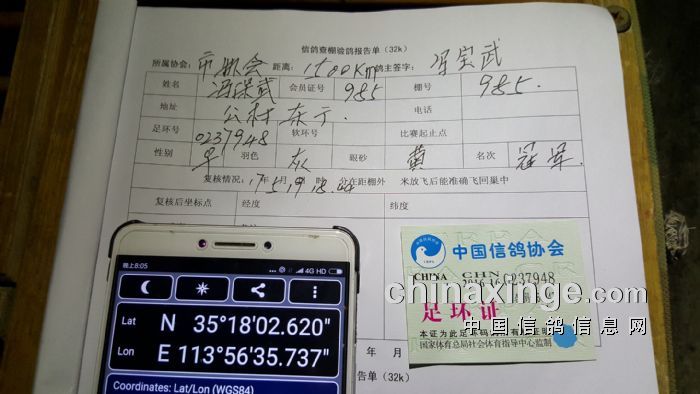 信鸽查棚验鸽报告单（32k）
所属协会：市郊会 距离：1500Km 鸽主签字：冯宝武
姓名 冯保武 会员证号 985 棚号 985.
地址 公村东于. 电话
足环号 0237948 软环号 比赛起止点
性别 羽色 灰 眼砂 黄 名次 冠军.
复核情况：17年5月19 分在距棚外 米放飞后能准确飞回巢中
复核后坐标点 经度 纬度
晚上8:05 4G HD
Lat N 35°18'02.620"
Lon E 113°56'35.737"
Coordinates: Lat/Lon (WGS84)
中国信鸽协会
CHINA CHN
2016-16 0237948
足环证
本证为此足环
国家体育总局社会体育指导中心监制
chinaxinge.com
中国信鸽信息网
年 月
告单（32k）